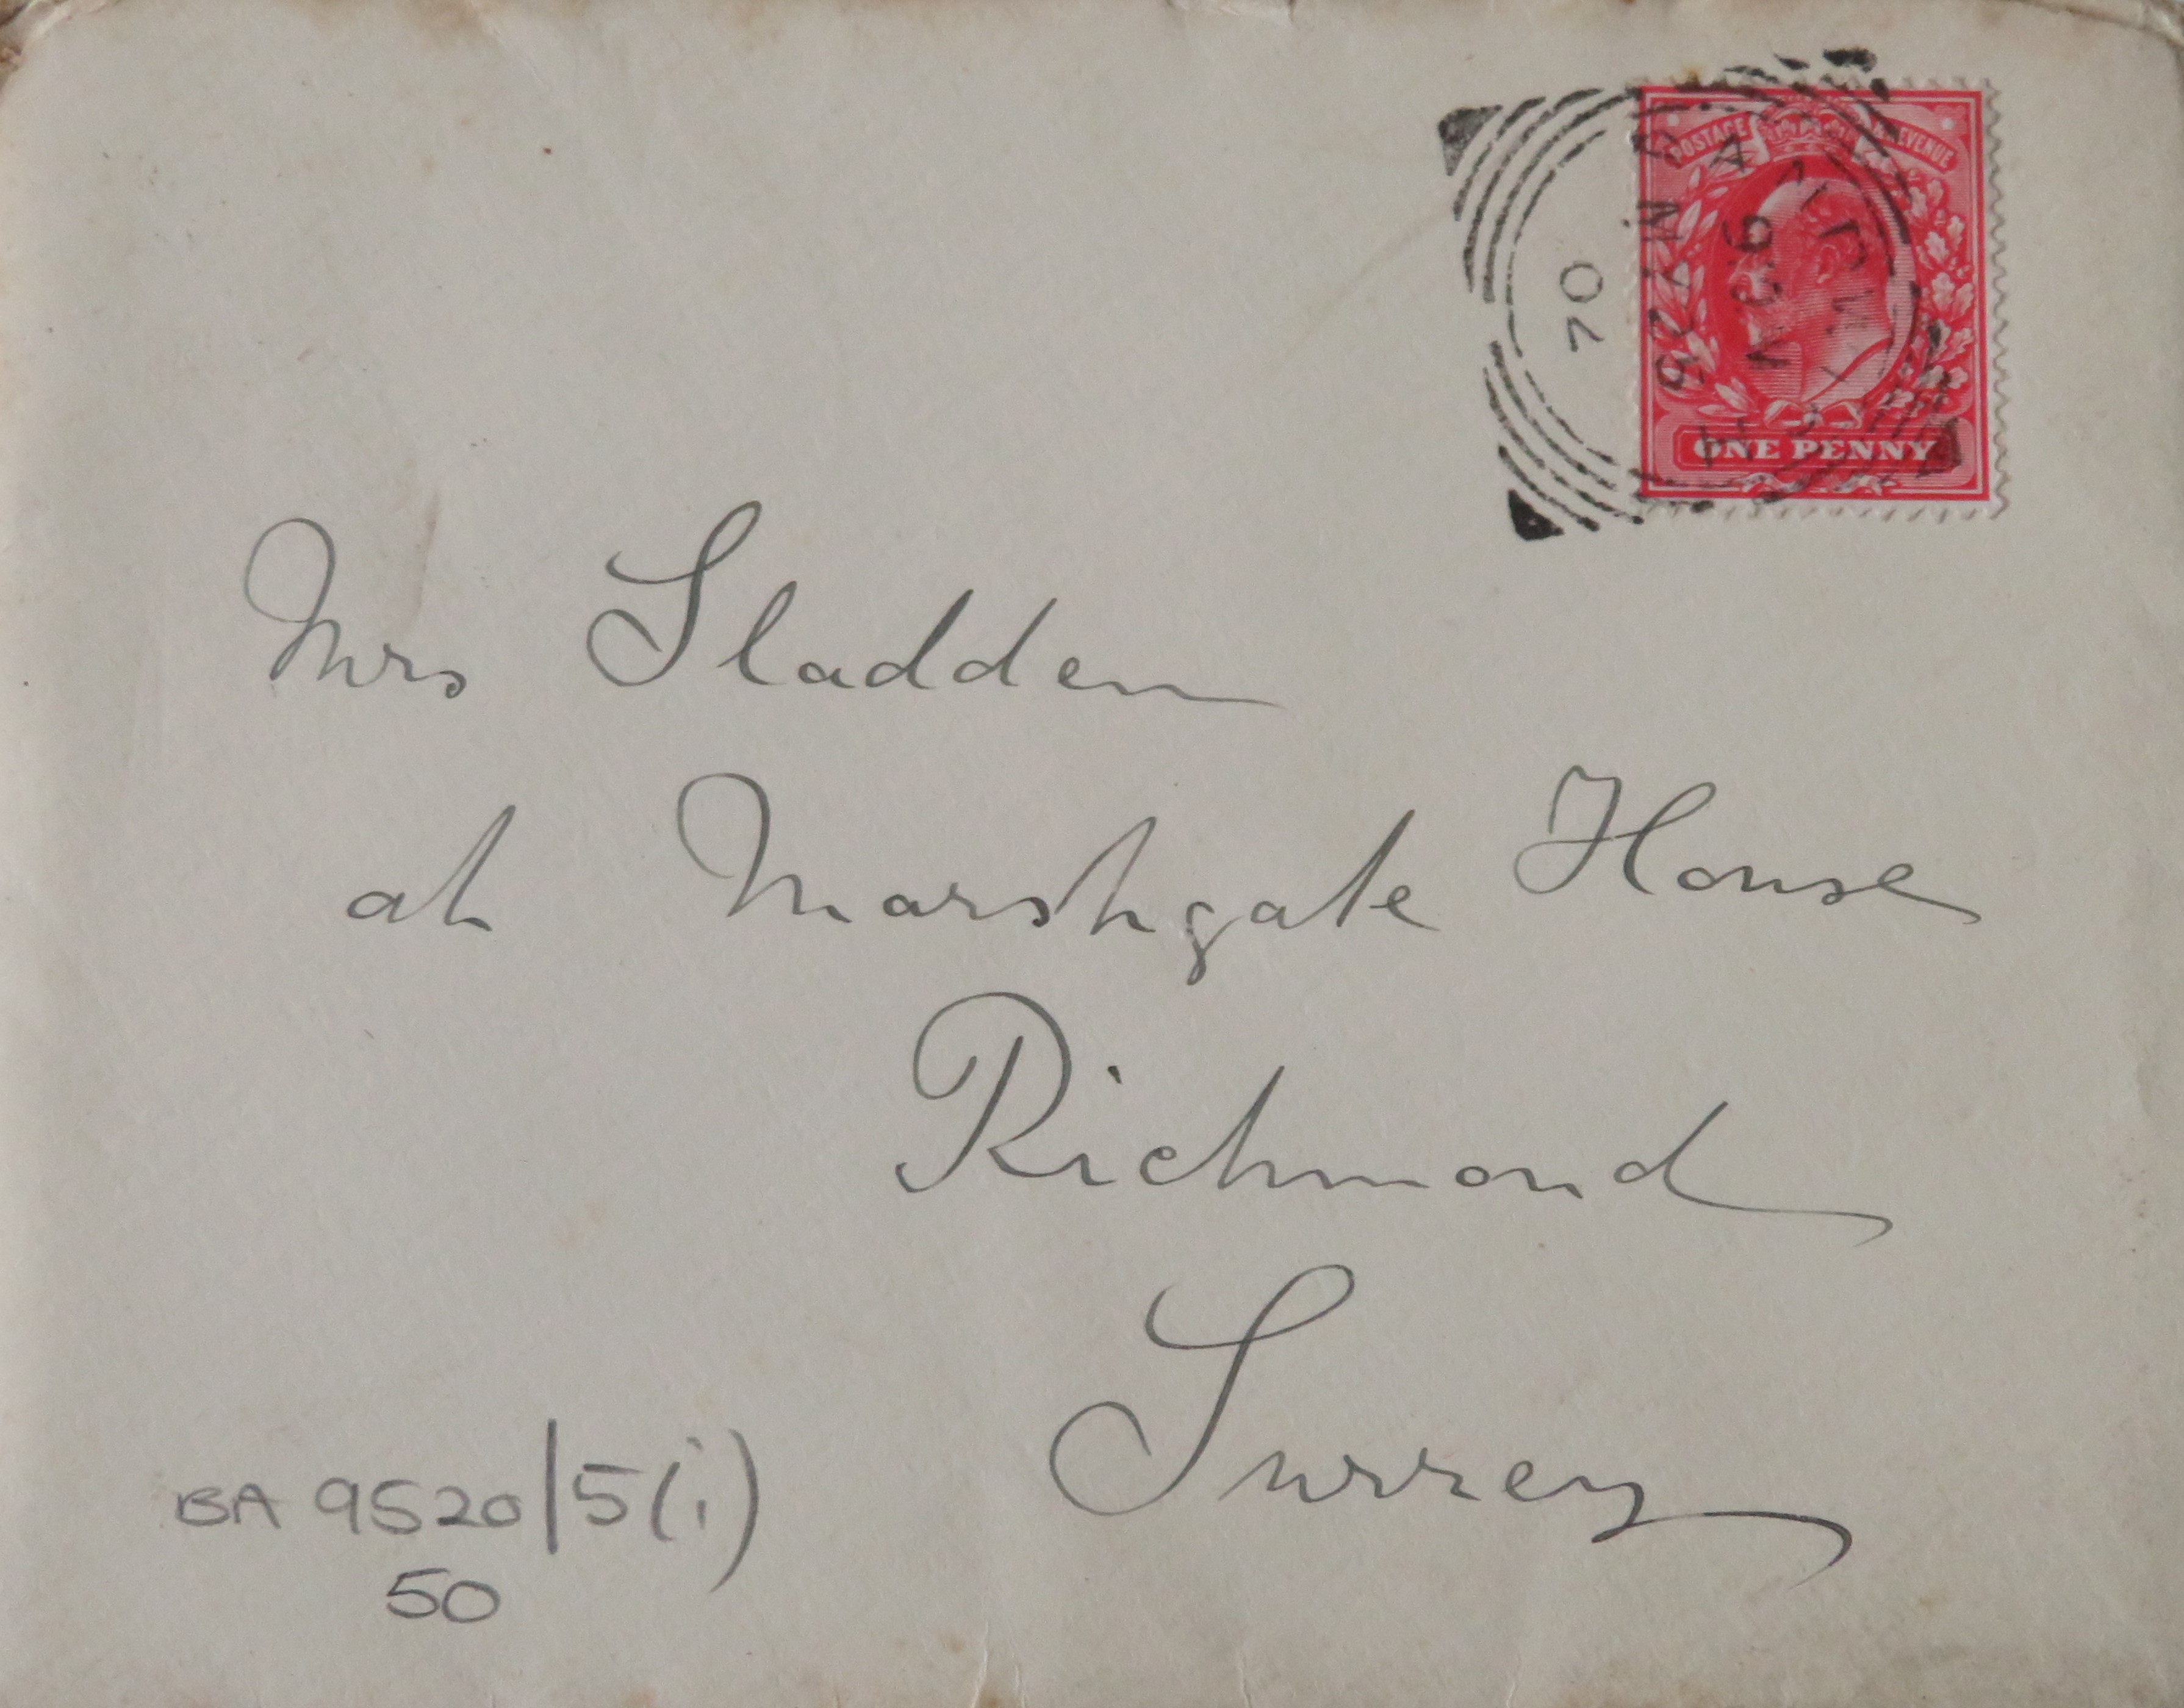 POSTAGE & REVENUE
ONE PENNY
70
Mrs Sladden
at Marshgate House
Richmond
Surrey
BA 9520/5(i)
50